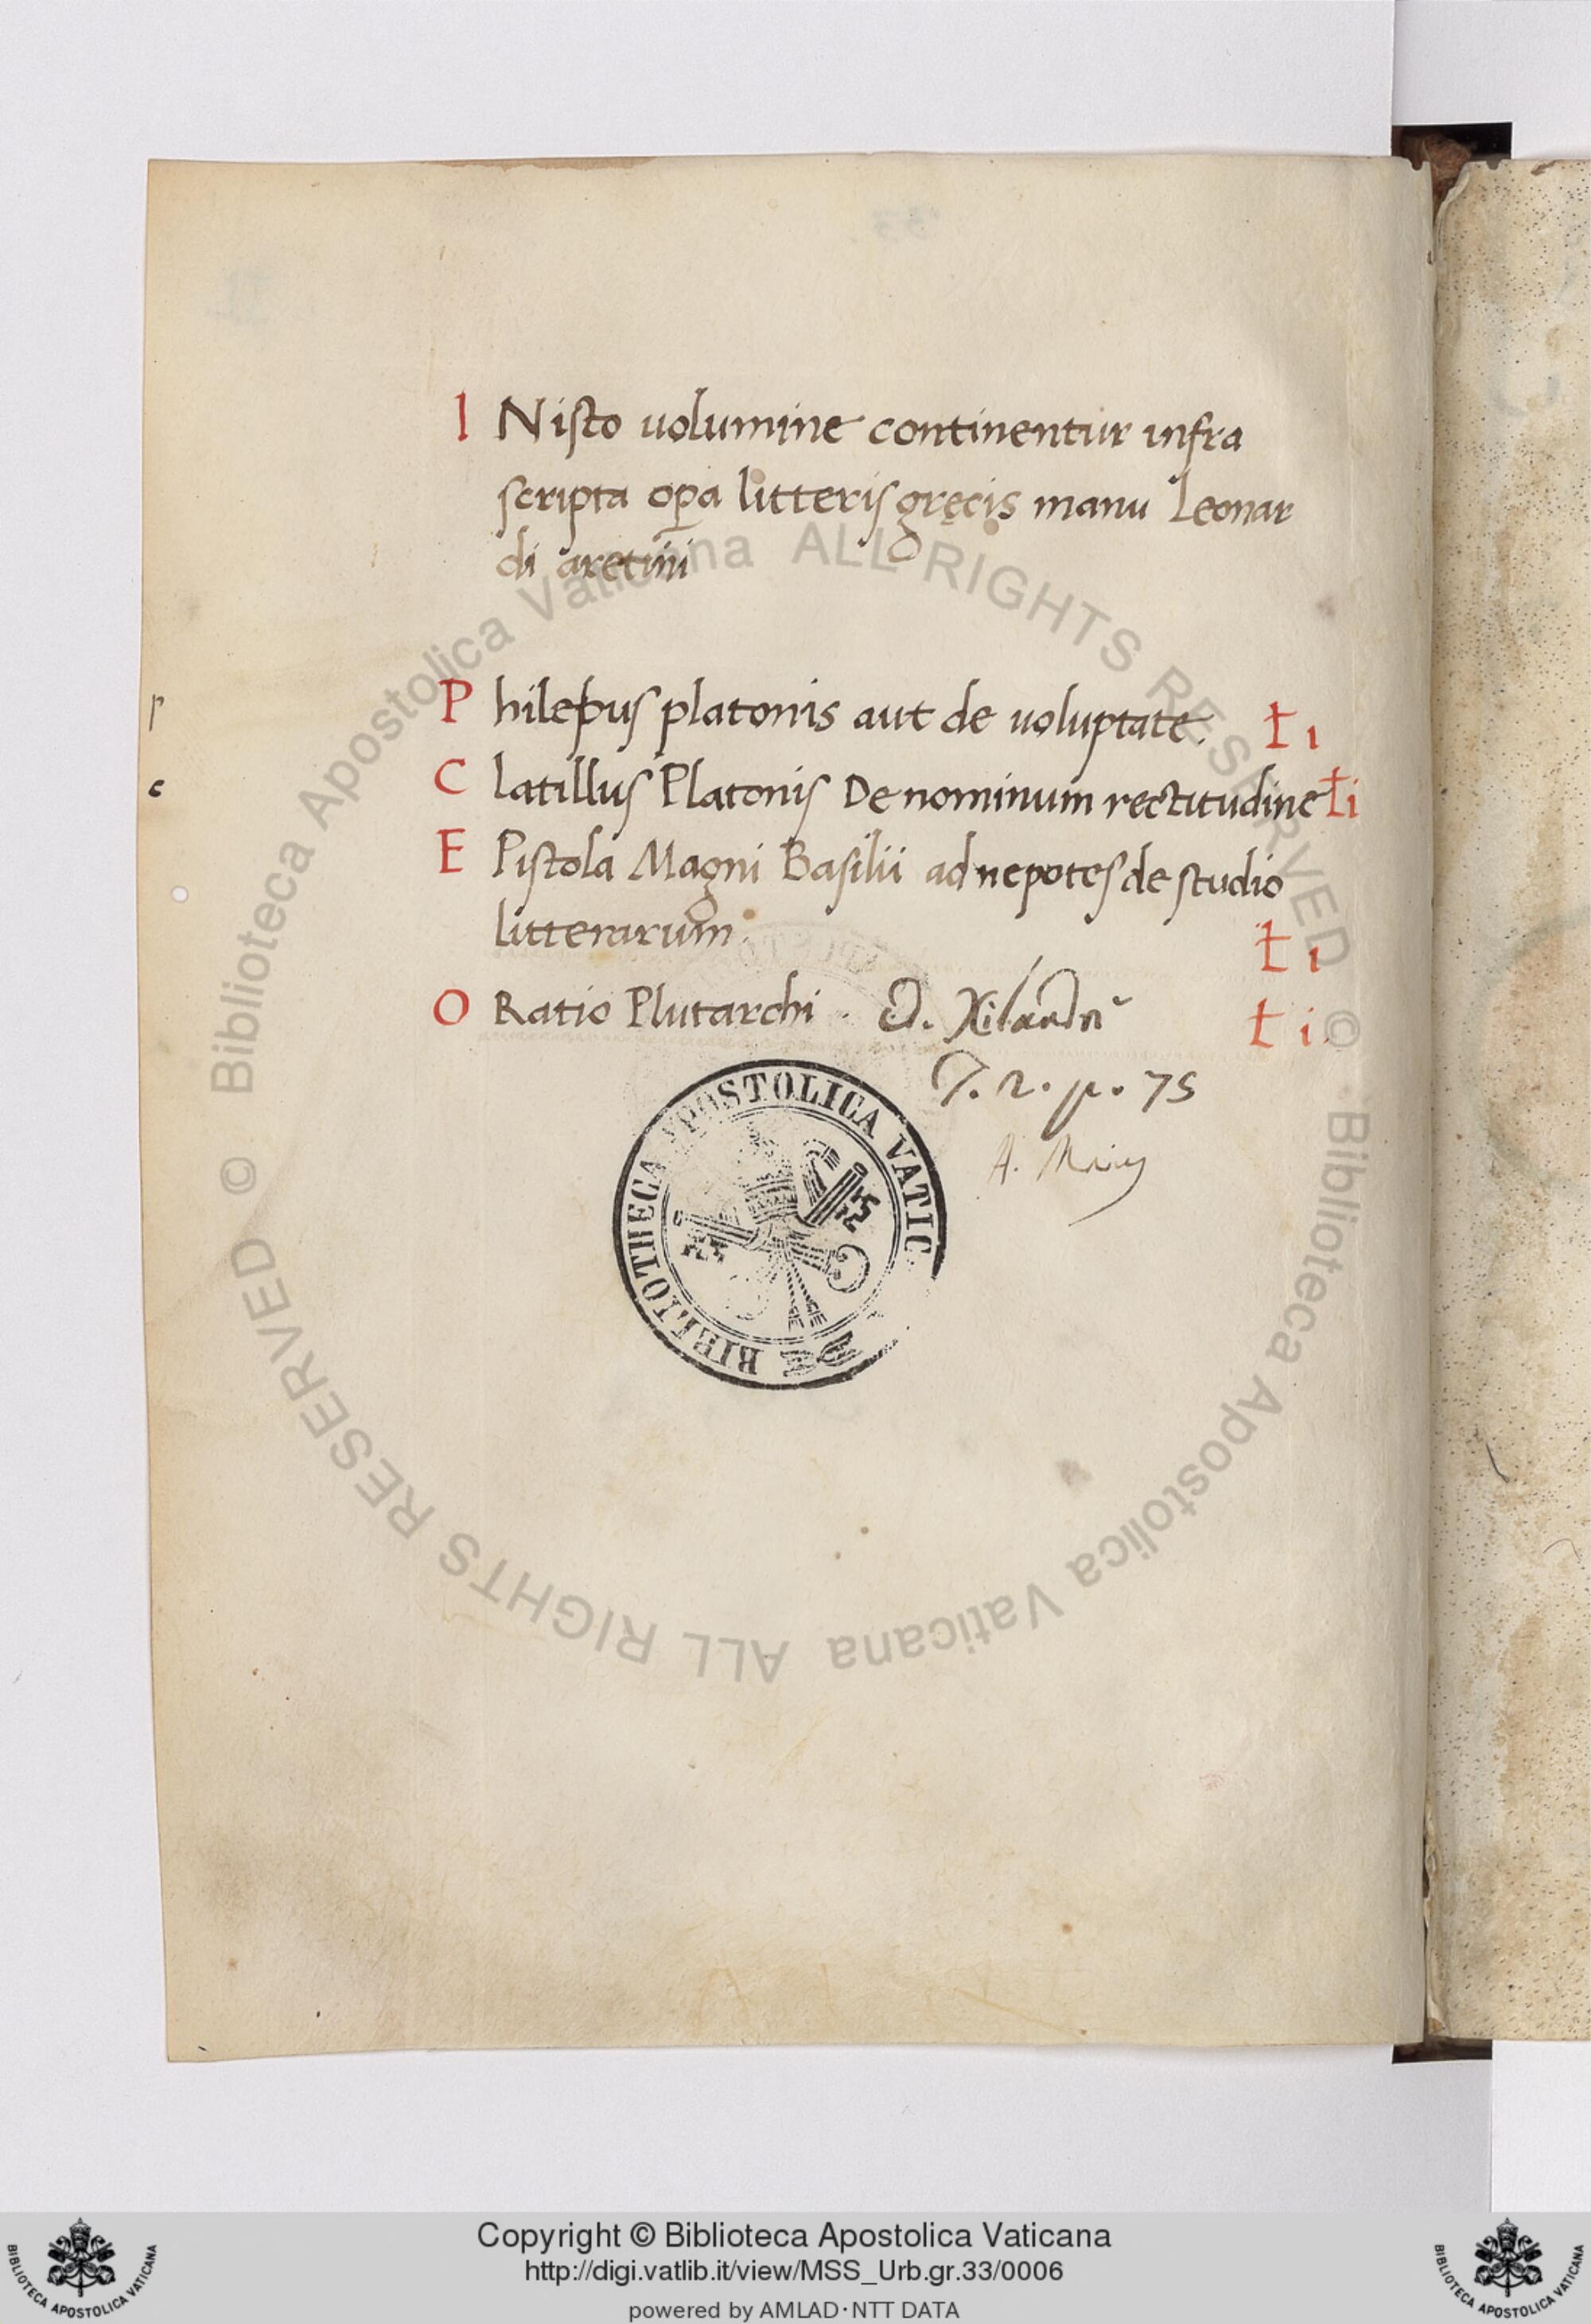 I Nisto uolumine continentur infra
scripta opa litteris gręcis manu Leonar
di aretini
P hilepus platonis aut de uoluptate. t 1
C latillus Platonis De nominum rectitudine t i
E Pistola Magni Basilii ad nepotes de studio
litterarum. t 1
O Ratio Plutarchi . t i.
T. 2. p. 75
A. Maius
p
c
BIBLIOTHECA APOSTOLICA VATIC
© Biblioteca Apostolica Vaticana ALL RIGHTS RESERVED
© Biblioteca Apostolica Vaticana ALL RIGHTS RESERVED
Copyright © Biblioteca Apostolica Vaticana
http://digi.vatlib.it/view/MSS_Urb.gr.33/0006
powered by AMLAD·NTT DATA
BIBLIOTECA APOSTOLICA VATICANA
BIBLIOTECA APOSTOLICA VATICANA